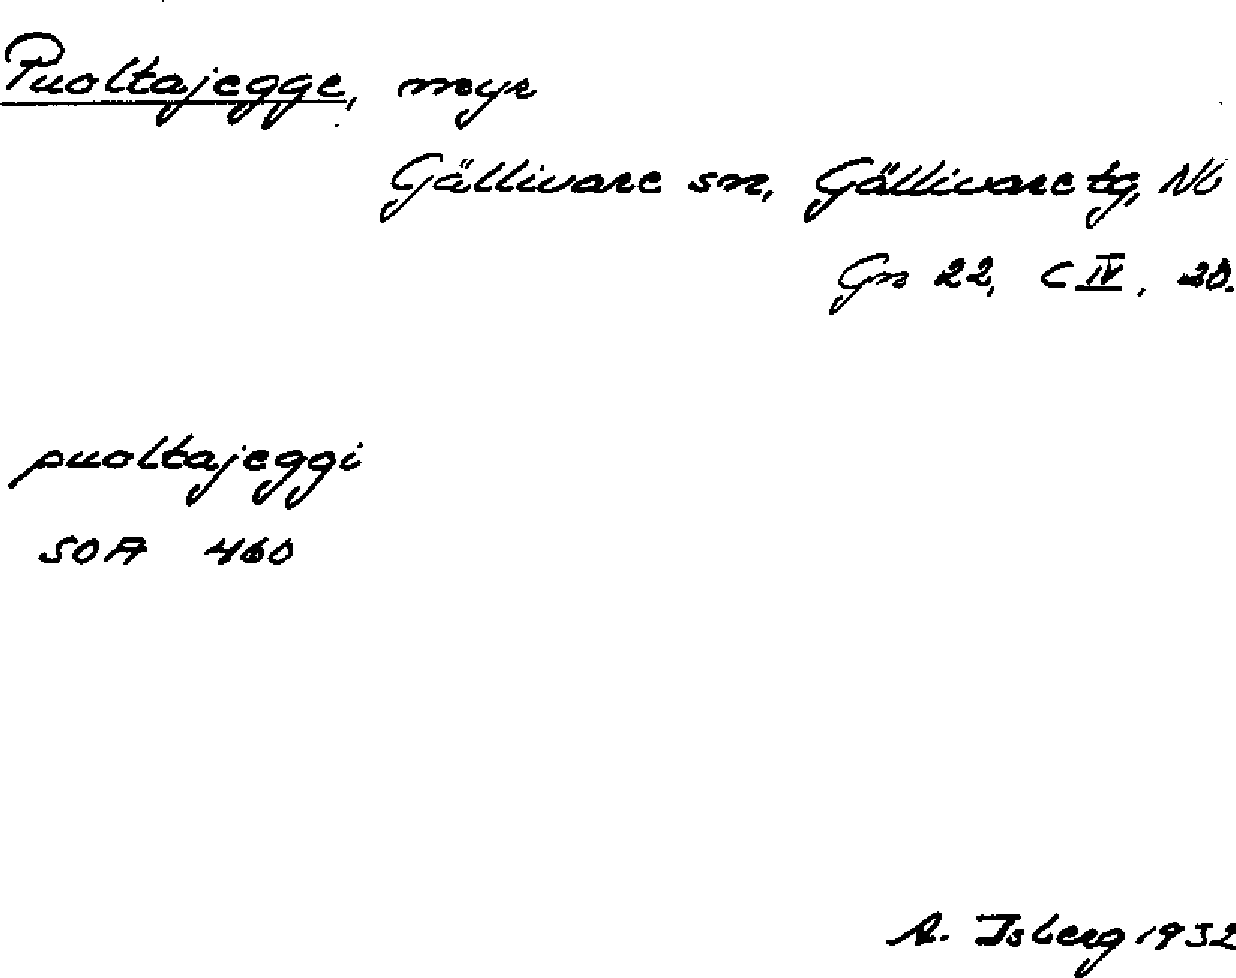 Puoltajegge, myr
Gällivare sn, Gällivare tg, Nb
Gn 22, C IV, 20.
puoltajeggi
SOA 460
A. Isberg 1932